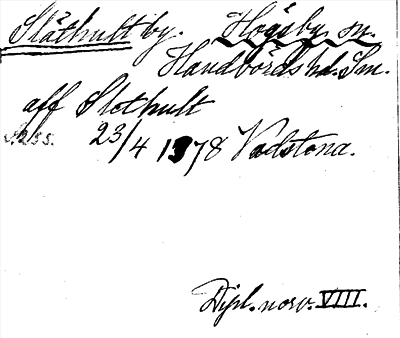 Slåthult by. Högsby sn.
Handbörds hd. Sm.
aff Slothult
S. 255. 23/4 1378 Vadstena.
Dipl. norv. VIII.